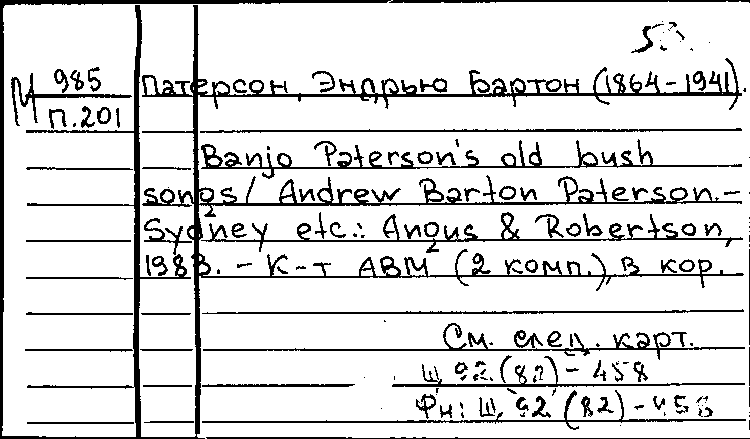 М 985
П.201
Патерсон, Эндрью Бартон (1864-1941).
Banjo Paterson's old bush
songs/ Andrew Barton Paterson.-
Sydney etc.: Angus & Robertson,
1983. - К-т АВМ (2 комп.), в кор.
См. след. карт.
Ш 92.(82)-458
Фн: Ш, 92 (82)-458